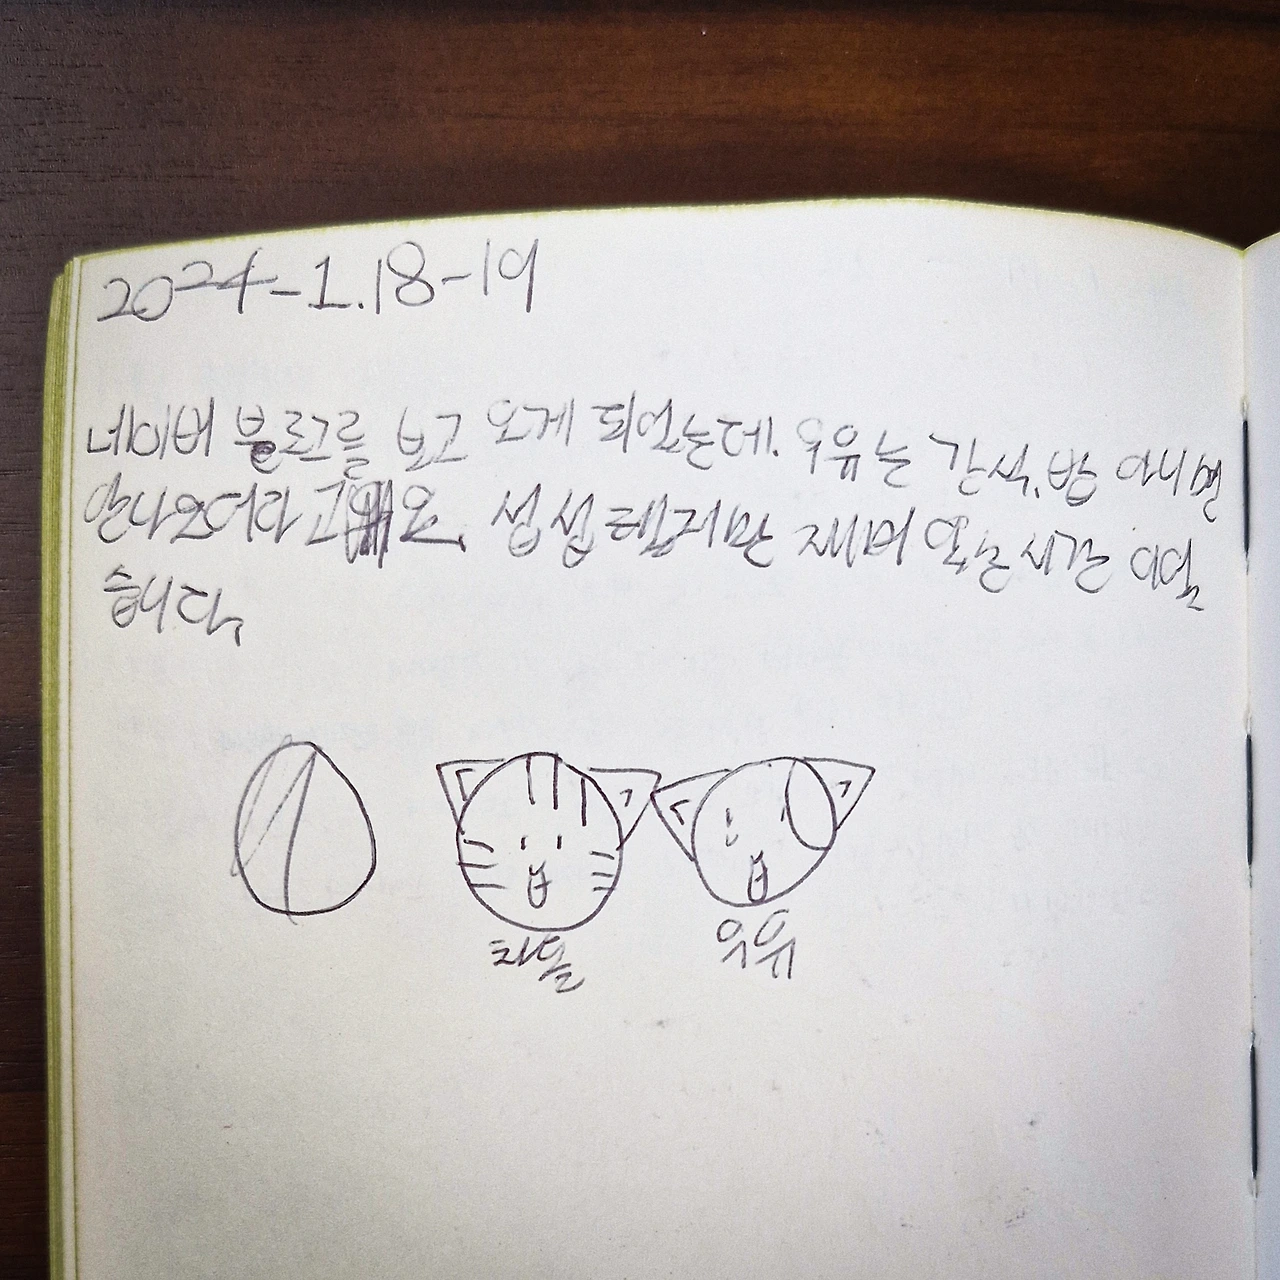 2024-1.18-19
네이버 블로그를 보고 오게 되었는데. 우유는 간식, 밥 아니면
안나오더라고요. 섭섭했지만 재미 있는 시간 이었
습니다.
차돌
우유